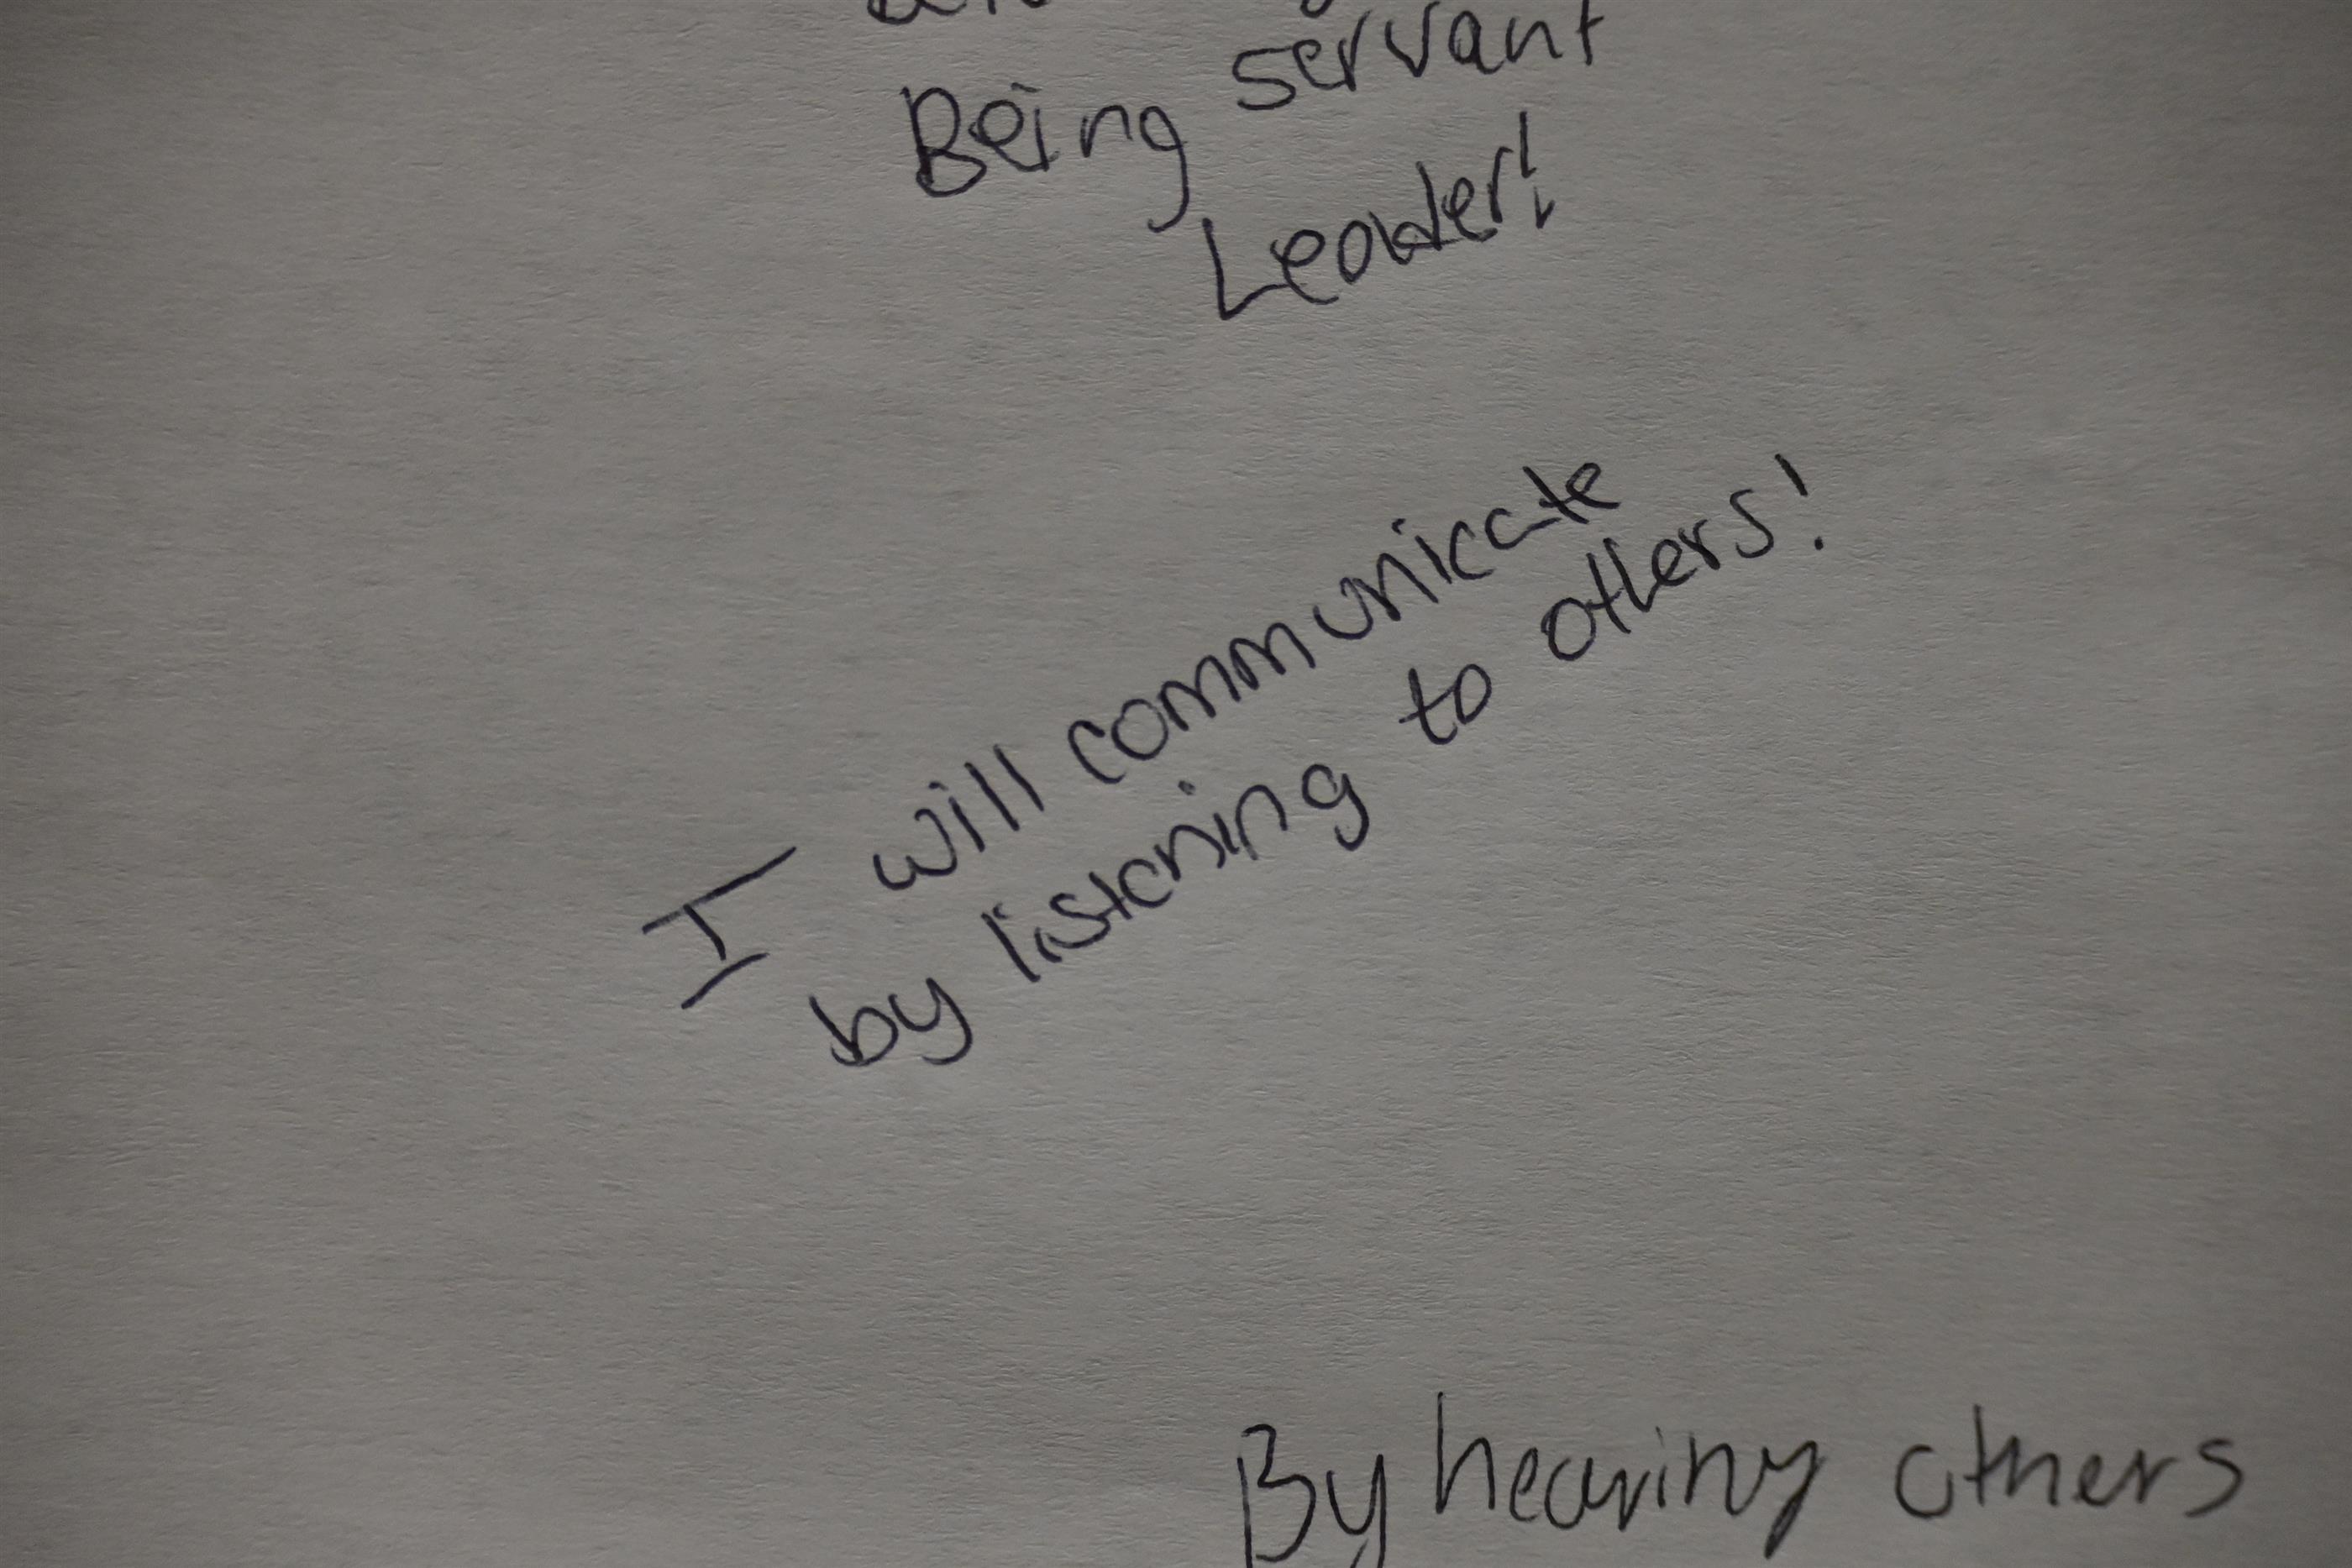 Being servant
Leader!
I will communicate
by listening to others!
By hearing others